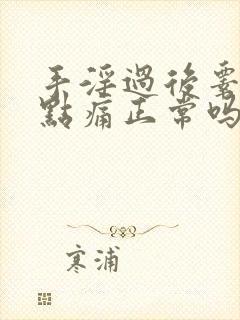 手淫過後要
點痛正常吗
寒浦